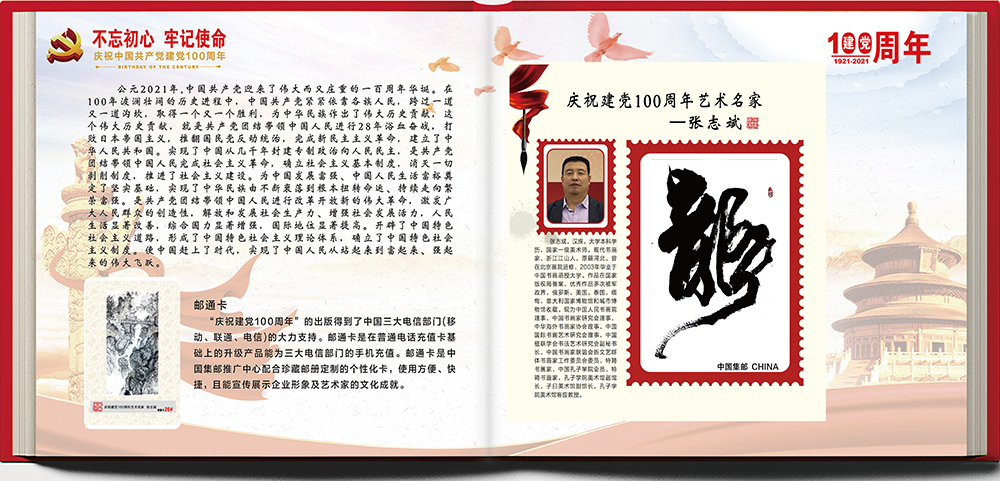 不忘初心 牢记使命
庆祝中国共产党建党100周年
BIRTHDAY OF THE CENTURY
公元2021年,中国共产党迎来了伟大而又庄重的一百周年华诞。在
100年波澜壮阔的历史进程中，中国共产党紧紧依靠各族人民，跨过一道
又一道沟坎，取得一个又一个胜利，为中华民族作出了伟大历史贡献，这
个伟大历史贡献，就是共产党团结带领中国人民进行28年浴血奋战，打
败日本帝国主义，推翻国民党反动统治，完成新民主主义革命，建立了中
华人民共和国。实现了中国从几千年封建专制政治向人民民主，是共产党
团结带领中国人民完成社会主义革命，确立社会主义基本制度，消灭一切
剥削制度，推进了社会主义建设。为中国发展富强、中国人民生活富裕奠
定了坚实基础，实现了中华民族由不断衰落到根本扭转命运、持续走向繁
荣富强。是共产党团结带领中国人民进行改革开放新的伟大革命，激发广
大人民群众的创造性，解放和发展社会生产力、增强社会发展活力，人民
生活显著改善，综合国力显著增强，国际地位显著提高。开辟了中国特色
社会主义道路，形成了中国特色社会主义理论体系，确立了中国特色社会
主义制度。使中国赶上了时代，实现了中国人民从站起来到富起来、强起
来的伟大飞跃。
邮通卡
“庆祝建党100周年”的出版得到了中国三大电信部门(移
动、联通、电信)的大力支持。邮通卡是在普通电话充值卡基
础上的升级产品能为三大电信部门的手机充值。邮通卡是中
国集邮推广中心配合珍藏邮册定制的个性化卡，使用方便、快
捷，且能宣传展示企业形象及艺术家的文化成就。
庆祝建党100周年艺术名家 张志斌
100周年
建党
1921-2021
庆祝建党100周年艺术名家
—张志斌
张志斌，汉族，大学本科学
历，国家一级美术师，现代书画
家，浙江江山人，原籍河北，曾
在北京画院进修，2003年毕业于
中国书画函授大学。作品在国家
版权局备案，优秀作品多次被军
政界，俄罗斯，美国，泰国，缅
甸，意大利国家博物馆和城市博
物馆收藏，现为中国人民书画院
理事，中国书画家研究会理事，
中华海外书画家协会理事，中国
国际书画艺术研究会理事，中国
楹联学会书法艺术研究会副秘书
长，中国书画家联谊会新文艺群
体书画家工作委员会委员，特聘
书画家，中国孔子学院会员，特
聘书画家，孔子学院美术馆副馆
长，子日美术馆副馆长，孔子学
院美术馆客座教授。
中国集邮 CHINA